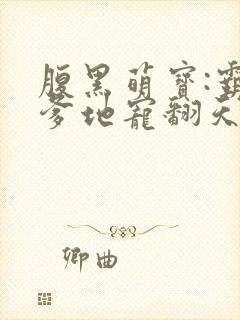 腹黑萌宝:霸
爹地宠翻天
卿曲